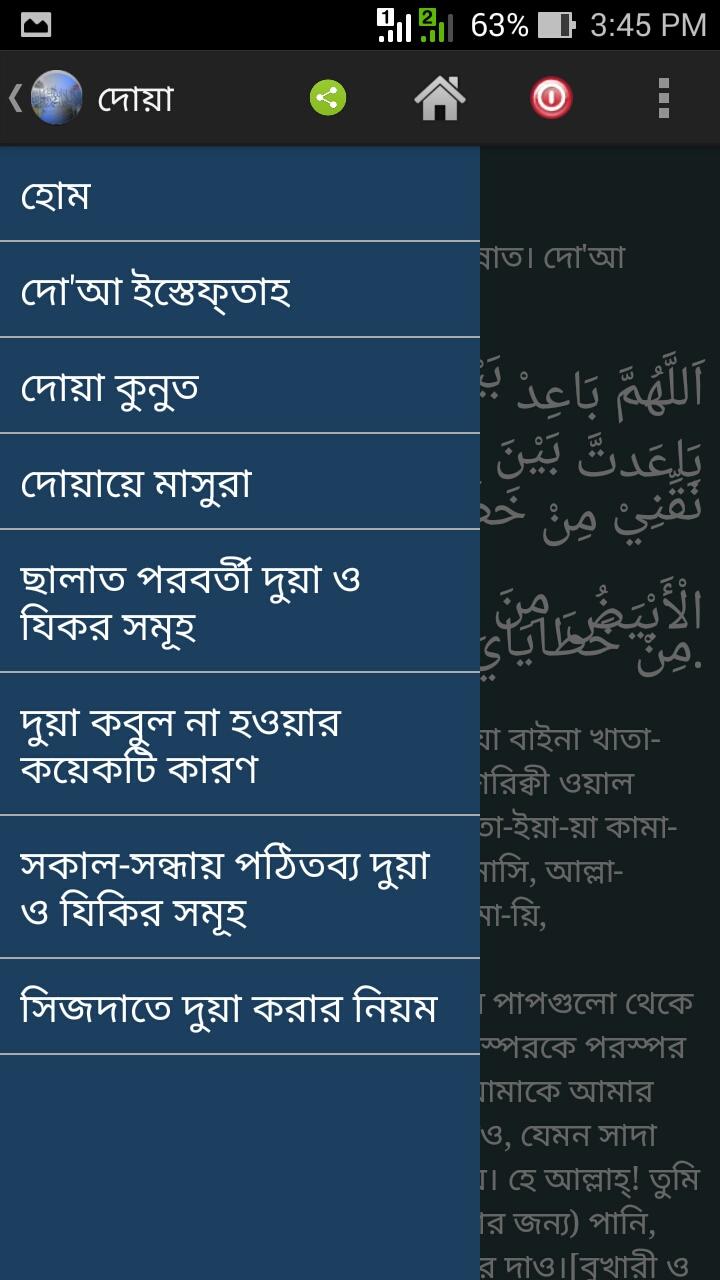 1 2 63% 3:45 PM
দোয়া
হোম
দো'আ ইস্তেফ্তাহ
দোয়া কুনুত
দোয়ায়ে মাসুরা
ছালাত পরবর্তী দুয়া ও
যিকর সমূহ
দুয়া কবুল না হওয়ার
কয়েকটি কারণ
সকাল-সন্ধায় পঠিতব্য দুয়া
ও যিকির সমূহ
সিজদাতে দুয়া করার নিয়ম
দো'আ
اَللَّهُمَّ بَاعِدْ
بَاعَدتَّ بَيْنَ
نَقِّنِيْ مِنْ
الْأَبْيَضُ مِنَ
مِنْ خَطَايَايَ.
বাইনা খাতা-
ওয়াল
কামা-
আল্লা-
পাপগুলো থেকে
পরস্পর
আমার
যেমন সাদা
হে আল্লাহ্! তুমি
জন্য) পানি,
দাও।[বুখারী ও